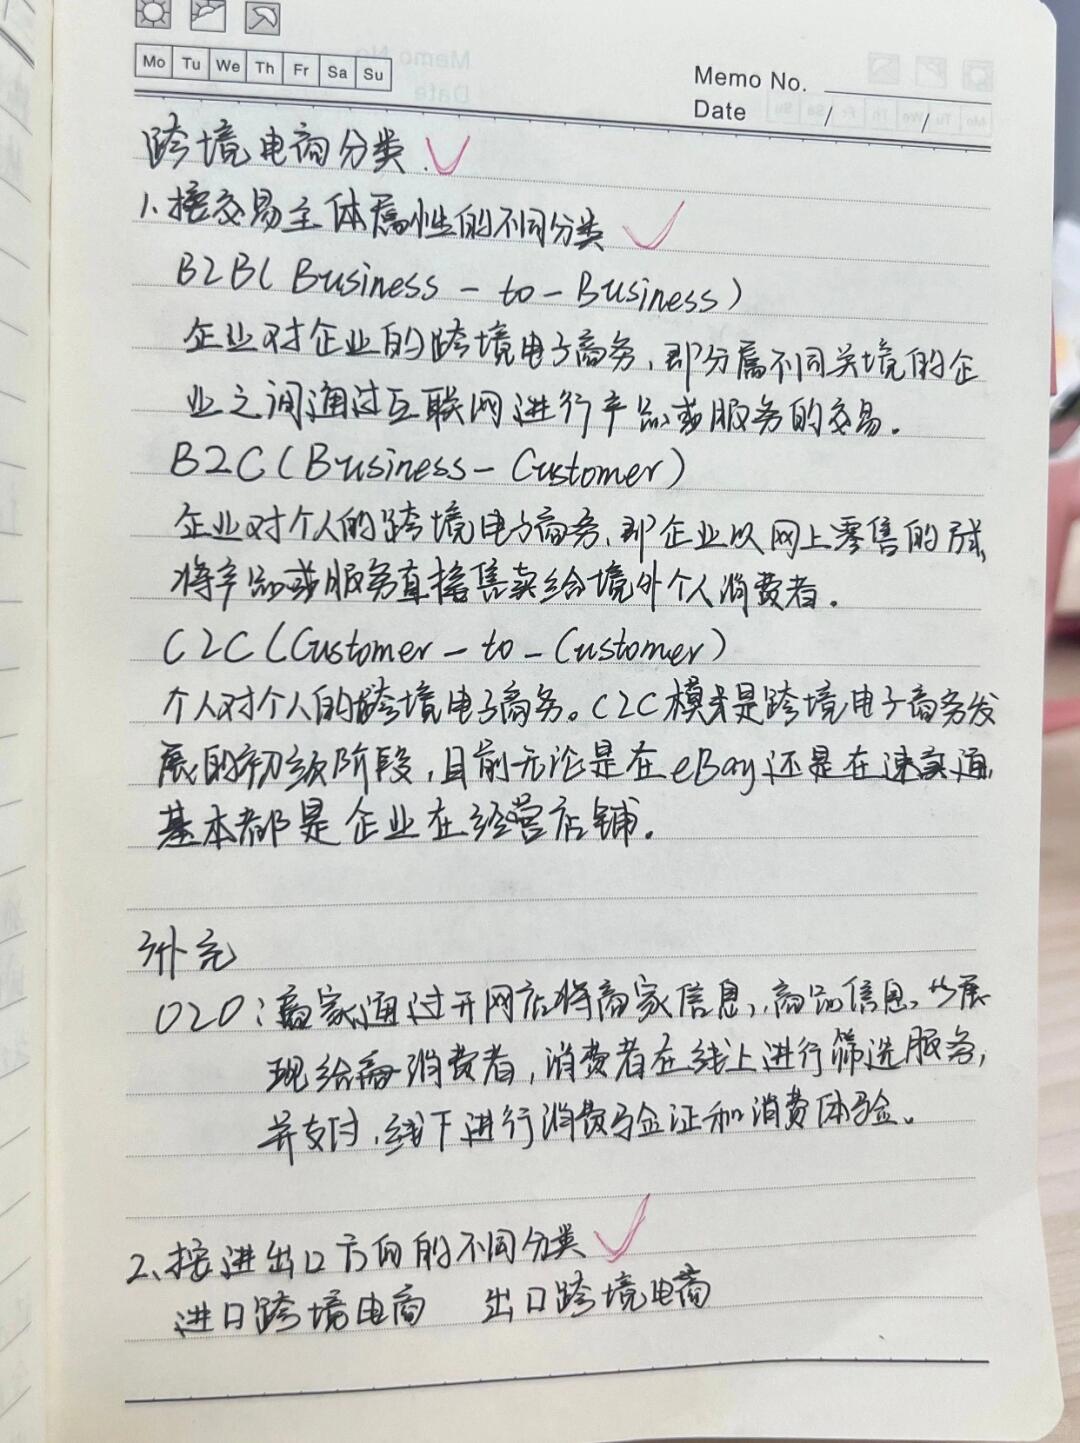 Mo Tu We Th Fr Sa Su
Memo No.
Date / /
跨境电商分类
1、按交易主体属性的不同分类
B2B( Business - to - Business)
企业对企业的跨境电子商务,即分属不同关境的企
业之间通过互联网进行产品或服务的交易。
B2C(Business - Customer)
企业对个人的跨境电子商务,即企业以网上零售的形式,
将产品或服务直接售卖给境外个人消费者。
C2C(Customer - to - Customer)
个人对个人的跨境电子商务。C2C模式是跨境电子商务发
展的初级阶段,目前无论是在eBay还是在速卖通,
基本都是企业在经营店铺。
补充
O2O:商家通过开网店将商家信息、商品信息、展
现给消费者,消费者在线上进行筛选服务,
并支付,线下进行消费验证和消费体验。
2、按进出口方向的不同分类
进口跨境电商 出口跨境电商